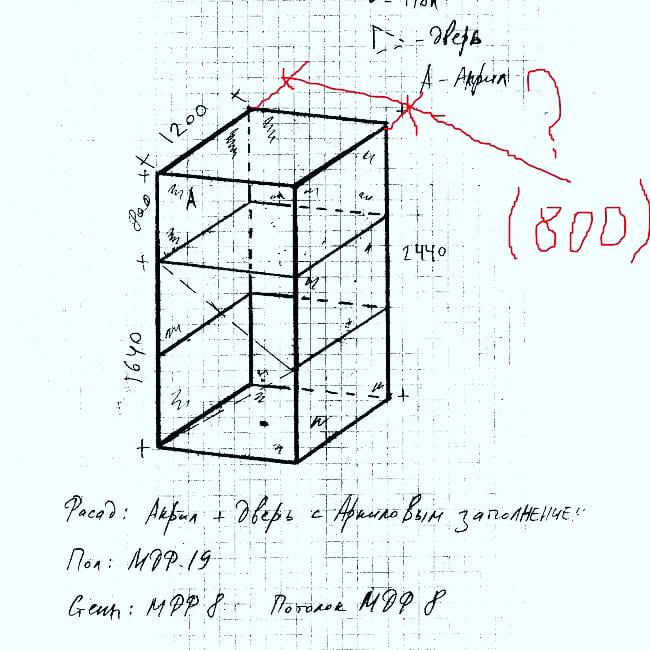 - Пол
- Дверь
А - Акрил
?
1200
А
800
(800)
2440
1640
Фасад: Акрил + Дверь с Акриловым заполнение:
Пол: МДФ 19
Стен: МДФ 8 Потолок МДФ 8